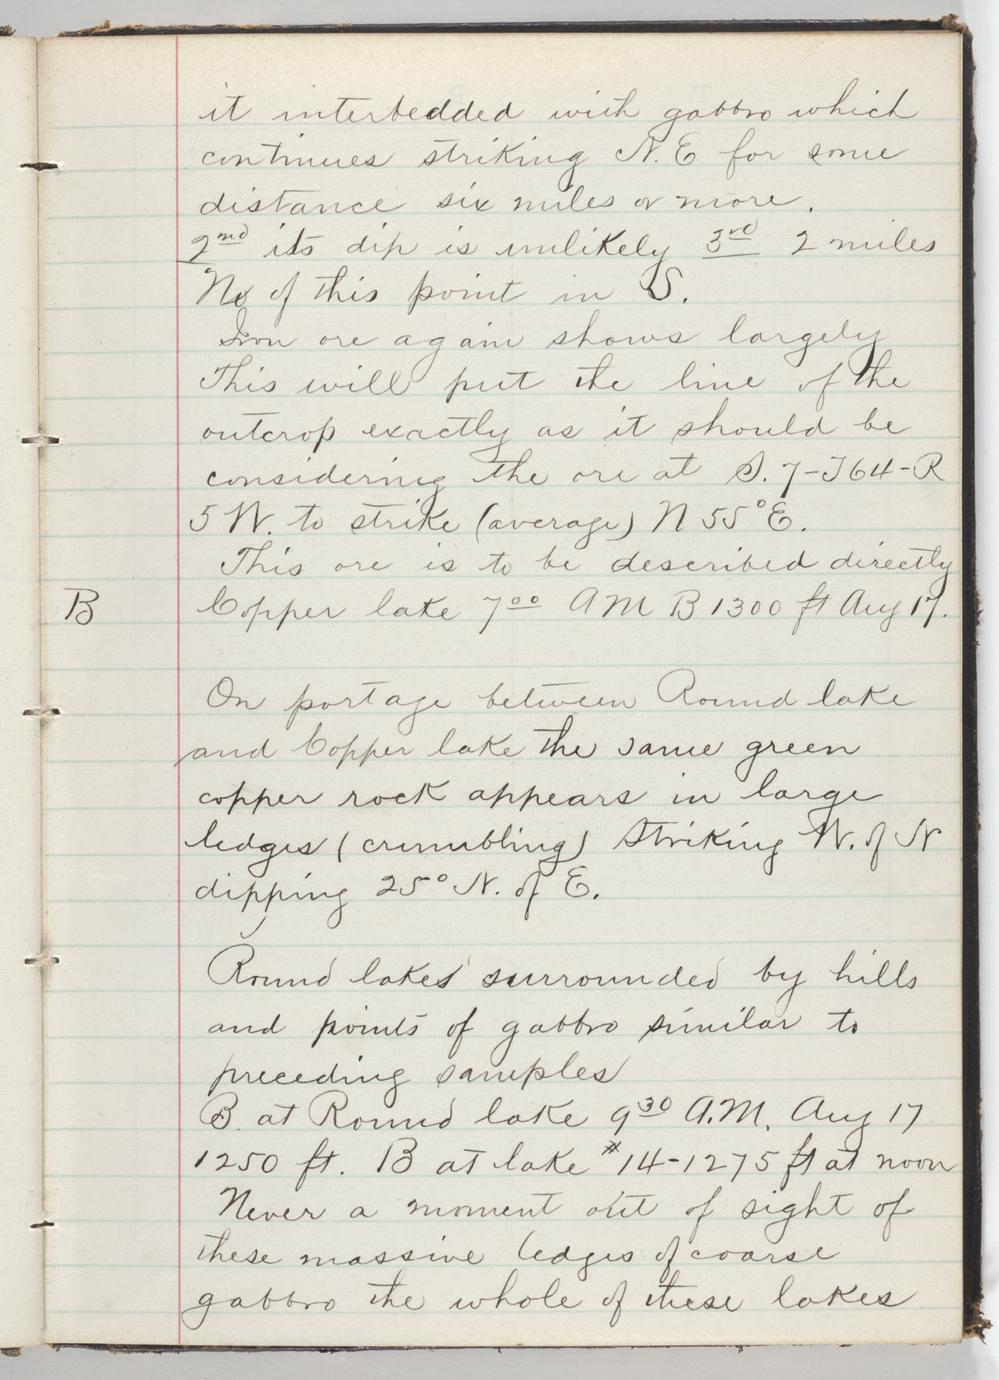 it interbedded with gabbro which
continues striking N.E for some
distance six miles or more.
2nd its dip is unlikely 3rd 2 miles
No of this point in S.
Iron ore again shows largely
This will put the line of the
outcrop exactly as it should be
considering the ore at S. 7-T64-R
5 W. to strike (average) N 55° E.
This ore is to be described directly
B Copper lake 7 00 A M B 1300 ft Aug 17.
On portage between Round lake
and Copper lake the same green
copper rock appears in large
ledges (crumbling) striking W. of N
dipping 25° N. of E.
Round lakes surrounded by hills
and points of gabbro similar to
preceding samples
B. at Round lake 9 30 A.M. Aug 17
1250 ft. B at lake #14-1275 ft at noon
Never a moment out of sight of
these massive ledges of coarse
gabbro the whole of these lakes